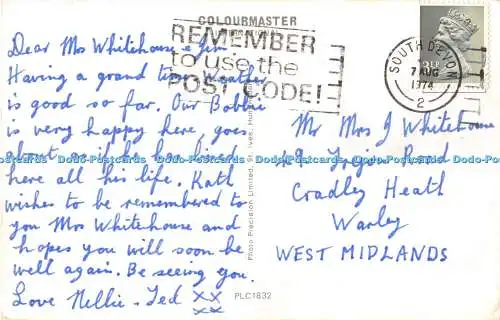 COLOURMASTER
INTERNATIONAL
REMEMBER
to use the
POST CODE!
SOUTH DEVON
7 AUG
1974
2
Dear Mrs Whitehouse & Jim.
Having a grand time. Weather
is good so far. Our Bobbie
is very happy here, goes
about as if he had lived
here all his life. Kath
wishes to be remembered to
you Mrs Whitehouse and
hopes you will soon be
well again. Be seeing you.
Love Nellie - Ted xx
xx
Photo Precision Limited, St. Ives, Hunts
PLC1832
Mr Mrs J Whitehouse
Road
Cradley Heath
Warley
WEST MIDLANDS
Dodo-Postcards Dodo-Postcards Dodo-Postcards Dodo-Postcards Dodo-Postcards Dodo-Postcards